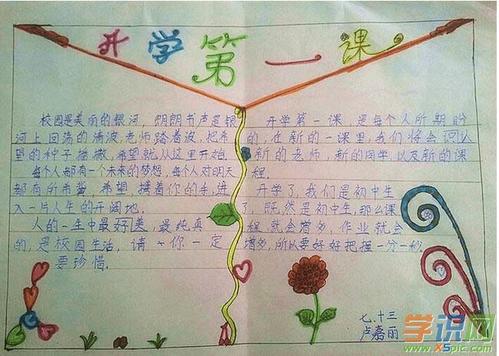 开学第一课
校园是美丽的银河，朗朗书声是银
河上回荡的清波，老师踏着波，把希
望的种子播撒，希望就从这里开始。
每个人都有一个未来的梦想，每个人对明天
都有所希蓄，希望，携着你的手，进
入一片人生的开阔地。
人的一生中最好美，最纯真
的，是校园生活，请你一定
要珍惜。
开学第一课，是每个人所期盼
的，在新的一课里，我们将会回认
新的老师，新的同学以及新的课
程。
开学了，我们是初中生
了，既然是初中生，那么课
程，就会增多，作业就会
增多，所以要好好把握一分一秒
七.十三
卢嘉丽
学识网
www.xspic.com